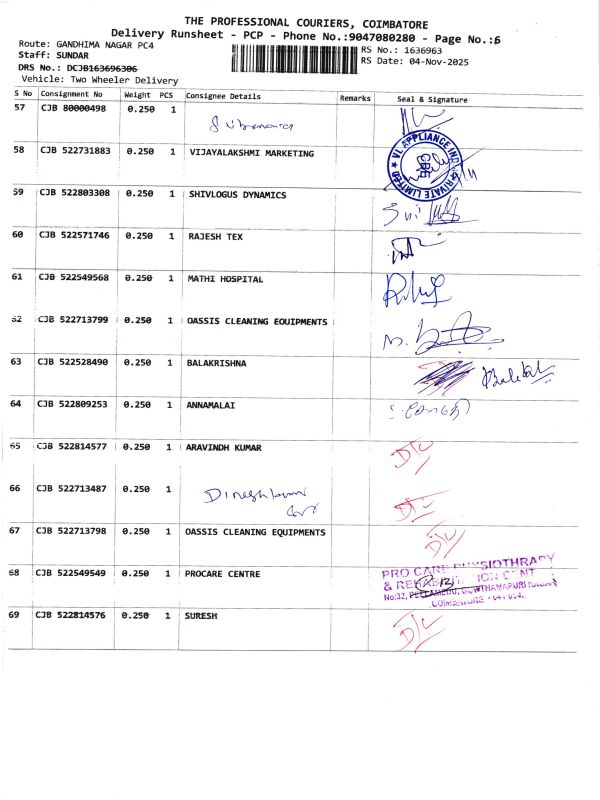 THE PROFESSIONAL COURIERS, COIMBATORE
Delivery Runsheet - PCP - Phone No.:9047080280 - Page No.:6
Route: GANDHIMA NAGAR PC4
RS No.: 1636963
Staff: SUNDAR
RS Date: 04-Nov-2025
DRS No.: DCJB163696306
Vehicle: Two Wheeler Delivery
S No Consignment No Weight PCS Consignee Details Remarks Seal & Signature
57 CJB 80000498 0.250 1
58 CJB 522731883 0.250 1 VIJAYALAKSHMI MARKETING
VL APPLIANCE INDIA PRIVATE LIMITED
CBE
59 CJB 522803308 0.250 1 SHIVLOGUS DYNAMICS
60 CJB 522571746 0.250 1 RAJESH TEX
61 CJB 522549568 0.250 1 MATHI HOSPITAL
62 CJB 522713799 0.250 1 OASSIS CLEANING EQUIPMENTS
63 CJB 522528490 0.250 1 BALAKRISHNA
64 CJB 522809253 0.250 1 ANNAMALAI
65 CJB 522814577 0.250 1 ARAVINDH KUMAR D/L
66 CJB 522713487 0.250 1 Dineshkumar D/L
67 CJB 522713798 0.250 1 OASSIS CLEANING EQUIPMENTS D/L
68 CJB 522549549 0.250 1 PROCARE CENTRE
PRO CARE PHYSIOTHRAPY
No:32, PEELAMEDU, GOWTHAMAPURI NAGAR
COIMBATORE - 641 004.
69 CJB 522814576 0.250 1 SURESH D/L